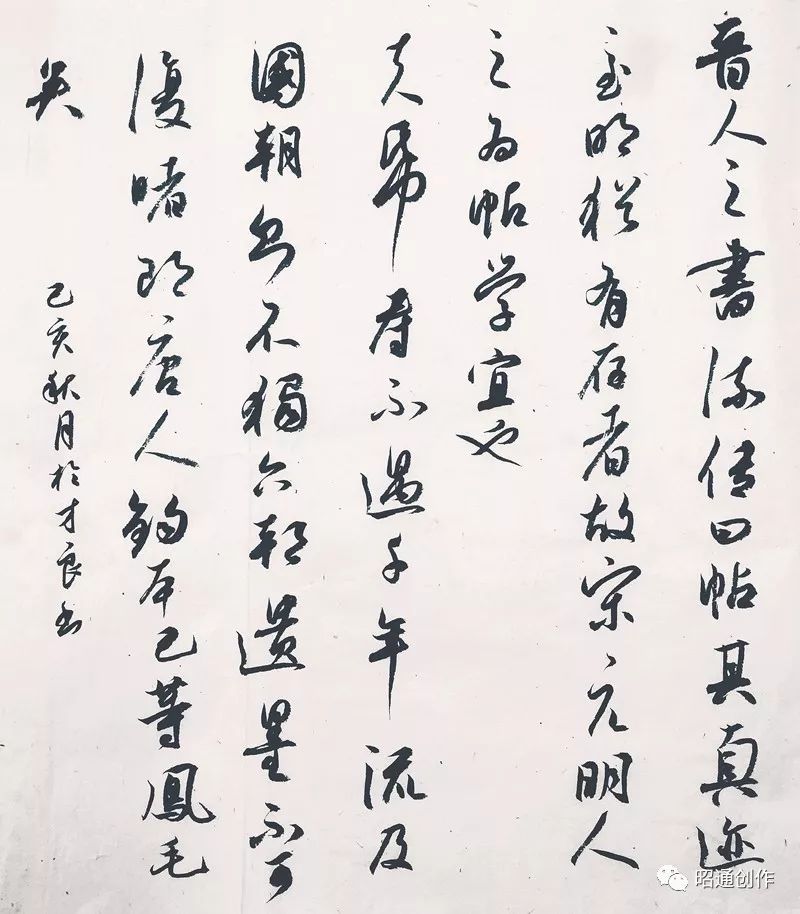 晉人之書流传曰帖其真迹
至明犹有存者故宋元明人
之为帖学宜也
夫帋寿不過千年流及
國朝则不獨六朝遺墨不可
復睹即唐人鈎本已等鳳毛
矣
己亥秋月於才良书
昭通创作